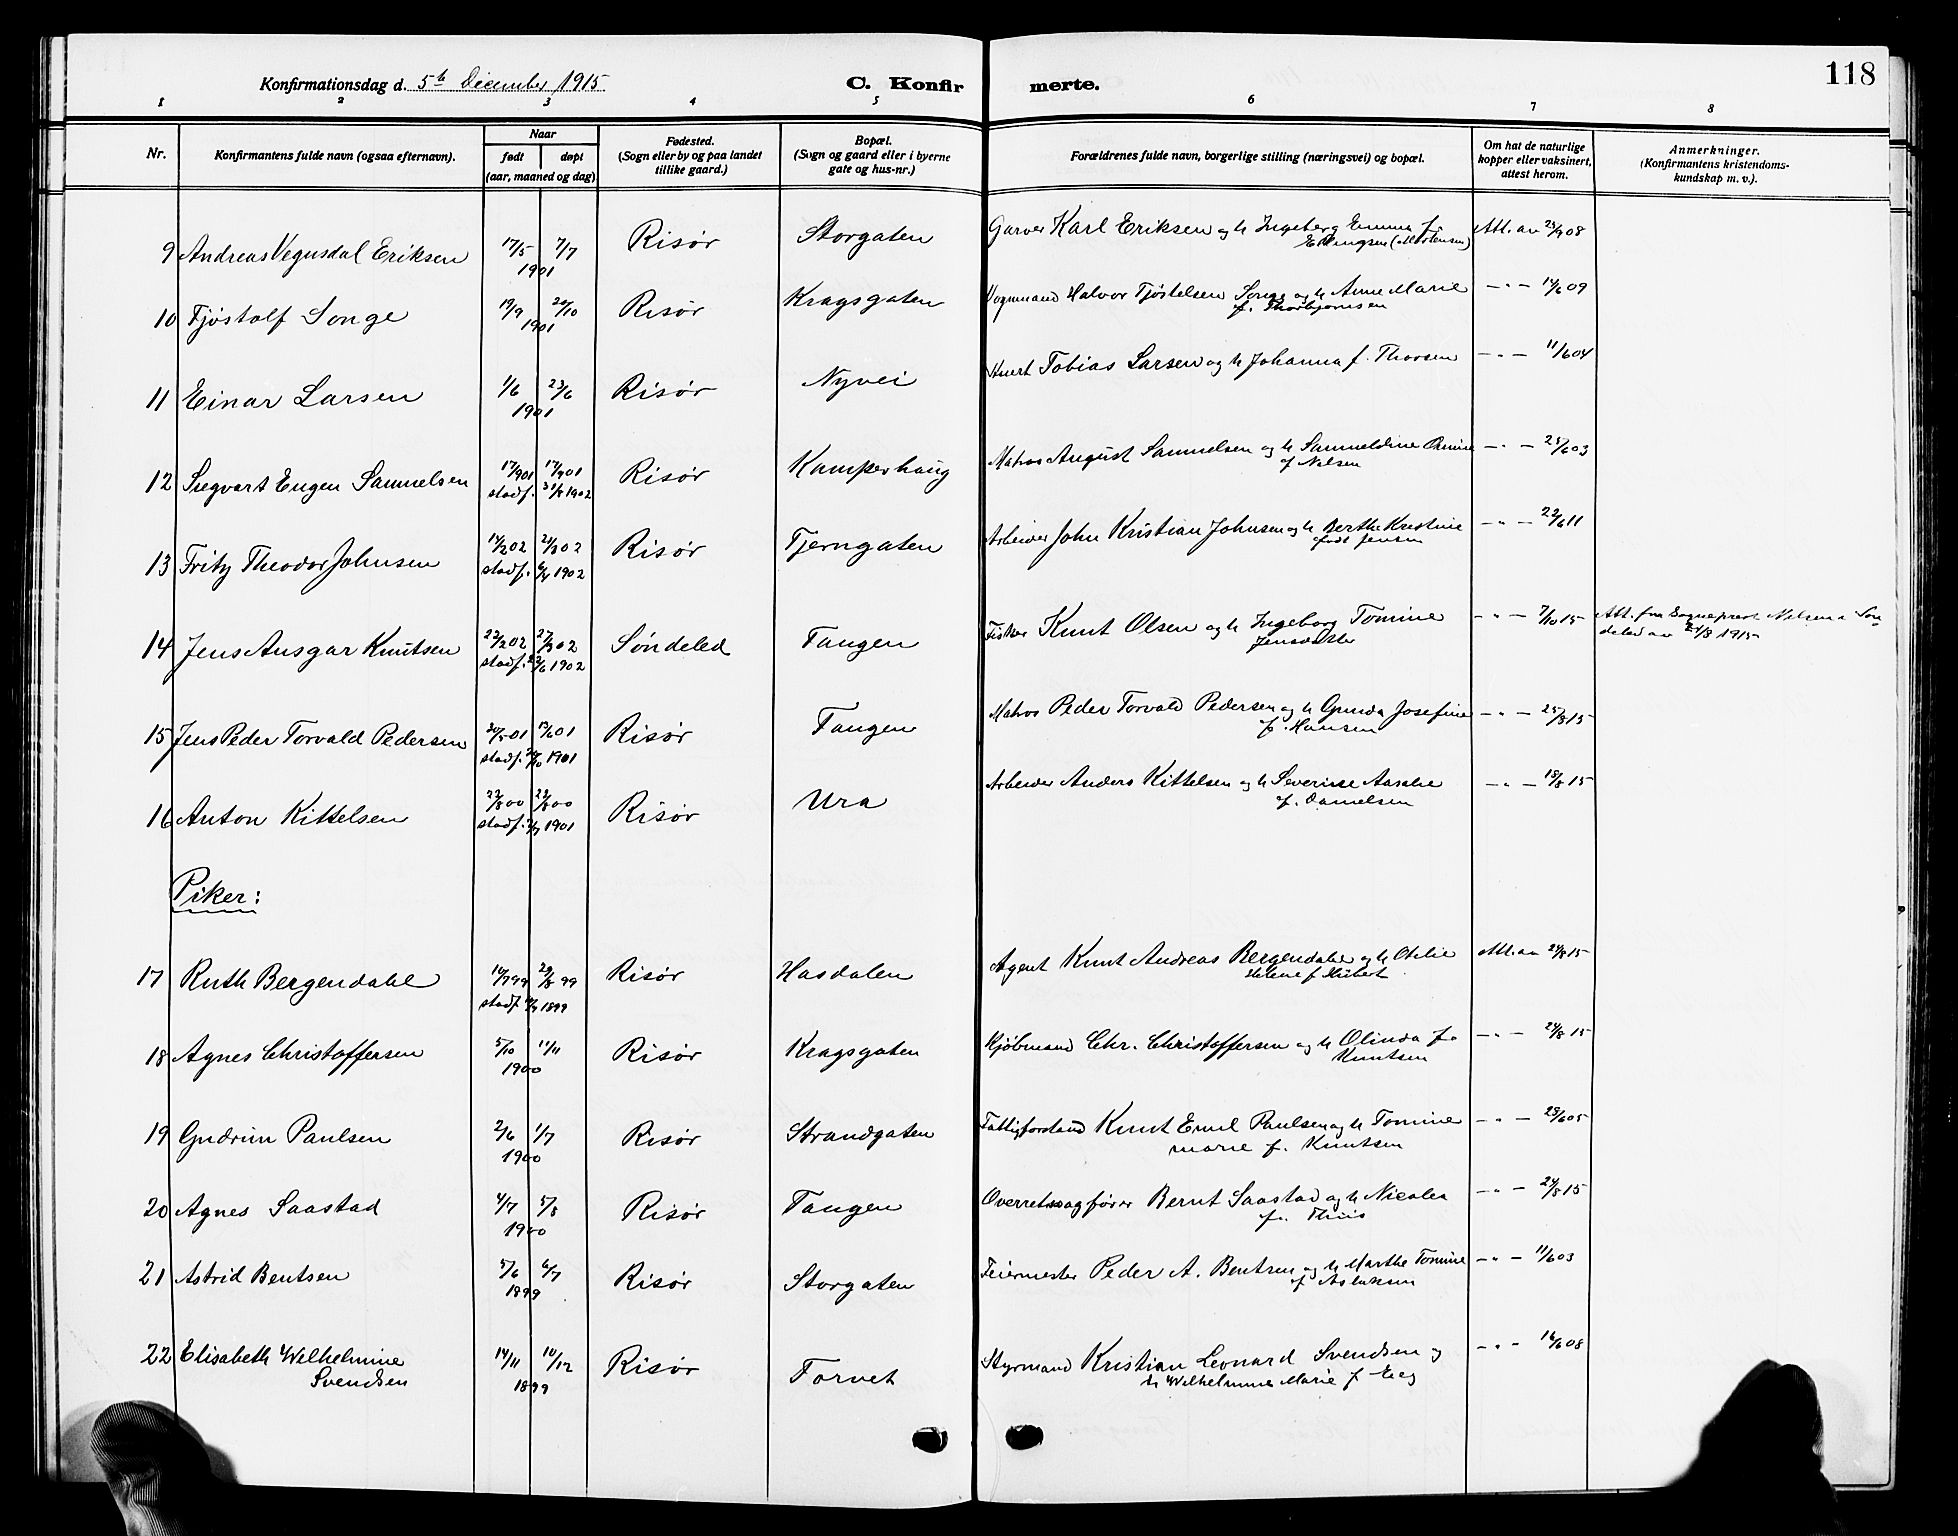 118
Konfirmationsdag d. 5te December 1915
C. Konfirmerte.
1 2 3 4 5 6 7 8
Nr. Konfirmantens fulde navn (ogsaa efternavn). Naar født døpt (aar, maaned og dag) Fødested. (Sogn eller by og paa landet tillike gaard.) Bopæl. (Sogn og gaard eller i byerne gate og hus-nr.) Forældrenes fulde navn, borgerlige stilling (næringsvei) og bopæl. Om hat de naturlige kopper eller vaksinert, attest herom. Anmerkninger. (Konfirmantens kristendomskundskap m. v.).
9 Andreas Vegusdal Eriksen 17/5 7/7 1901 Risør Storgaten Garver Karl Eriksen og h Ingeborg Emma f. Ellingsen (Mortensen) Att. av
10 Tjøstolf Songe 19/9 20/10 1901 Risør Kragsgaten Vognmand Halvor Tjøstelsen Songe og h Anne Marie f. Thorbjørnsen — " — 09
11 Einar Larsen 1/6 23/6 1901 Risør Nyvei Tobias Larsen og h Johanna f. Thorsen — " — 11/6 04
12 Siegvart Eugen Samuelsen 17/9 01 stadf. 31/8 1902 Risør Kamperhaug Matros August Samuelsen og h Samueldine f Nilsen — " — 25/6 03
13 Fritz Theodor Johnsen stadf. 6/4 1902 Risør Tjerngaten Arbeider John Kristian Johnsen og h Berthe Kristine født Jensen — " — 22/6 11
14 Jens Ansgar Knutsen 22/2 02 27/3 02 stadf. 22/6 1902 Søndeled Tangen Fisker Knut Olsen og h Ingeborg Tomine Jensdatter — " — 7/10 15 Att. fra Sogneprest Nilsen i Søndeled av 1915
15 Jens Peder Torvald Pedersen stadf. 1901 Risør Tangen Matros Peder Torvald Pedersen og h Gunda Josefine f. Hansen — " — 25/8 15
16 Anton Kittelsen 22/8 00 stadf. 1901 Risør Ura Arbeider Anders Kittelsen og h Severine Aaselie f. Danielsen — " — 18/8 15
Piker:
17 Ruth Bergendahl stadf. 1899 Risør Hasdalen Agent Knut Andreas Bergendahl og h Otelie Att. av 24/8 15
18 Agnes Christoffersen 5/10 11/11 1900 Risør Kragsgaten Kjøbmand Chr. Christoffersen og h Olinda f. Knutsen — " — 24/8 15
19 Gudrun Paulsen 2/6 1/7 1900 Risør Strandgaten Fattigforstand Knut Emil Paulsen og h Tomine Marie f. Knutsen — " — 23/6 05
20 Agnes Saastad 4/7 5/8 1900 Risør Tangen Overretssagfører Bernt Saastad og h Nicolea f. Thiis — " — 24/8 15
21 Astrid Bentsen 5/6 6/7 1899 Risør Storgaten Feiermester Peder A. Bentsen og h Marthe Tomine f Aslaksen — " — 11/6 03
22 Elisabeth Wilhelmine Svendsen 14/11 10/12 1899 Risør Torvet Styrmand Kristian Leonard Svendsen og h Wilhelmine Marie f Eeg — " — 08